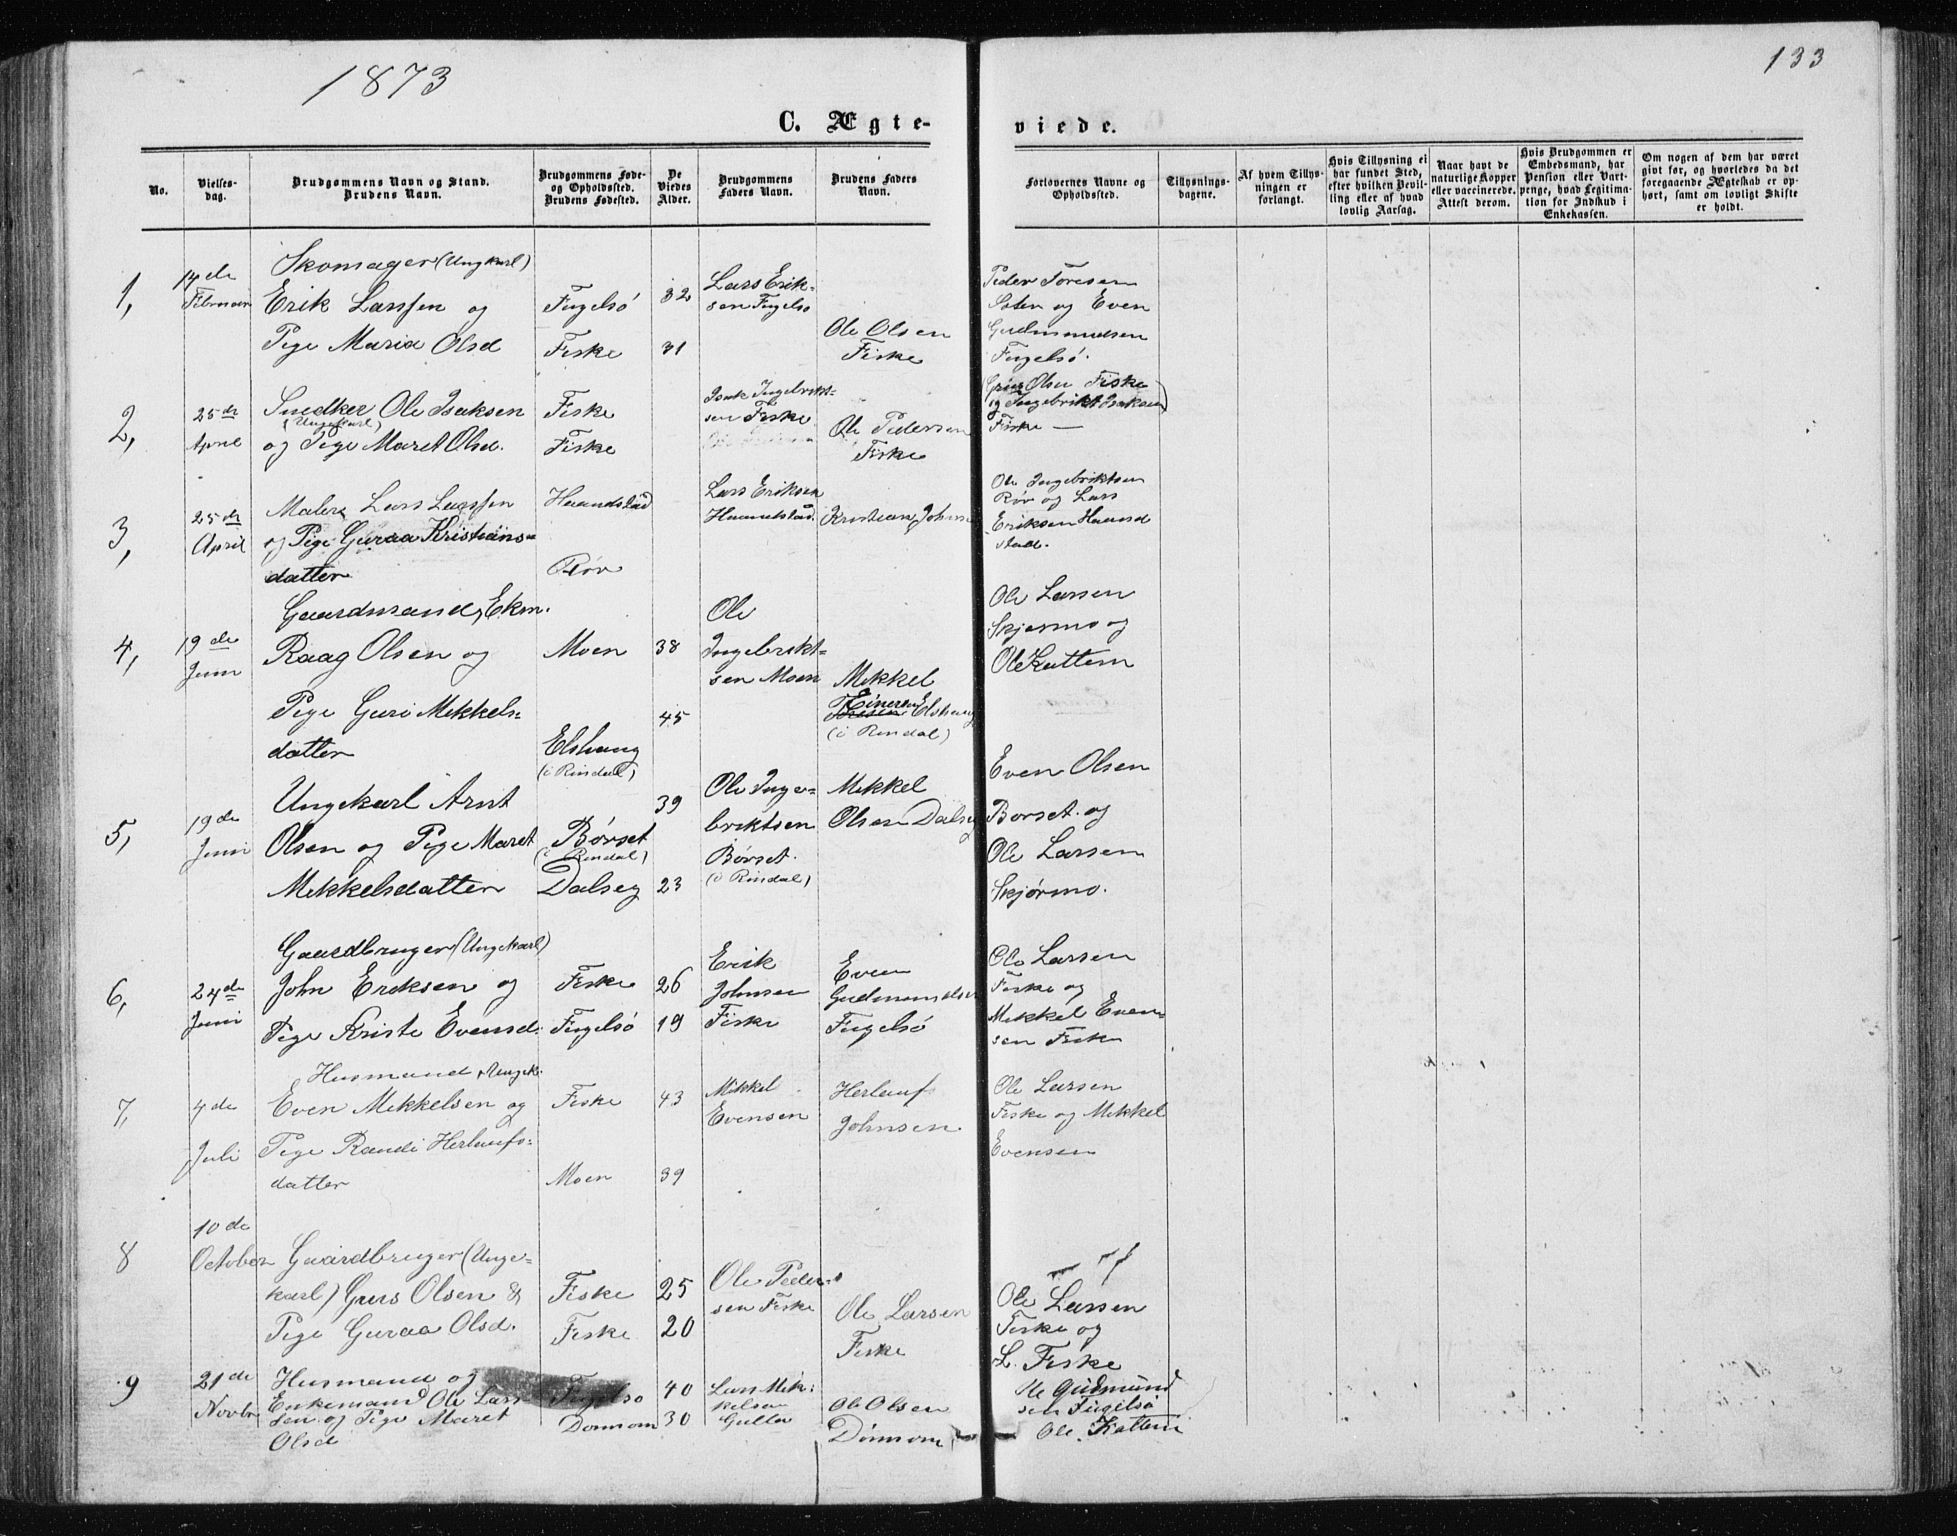 1873
133
C. Ægte-
viede.
No.
Vielses-
dag.
Brudgommens Navn og Stand.
Brudens Navn.
Brudgommens Føde-
og Opholdssted.
Brudens Fødested.
De
Viedes
Alder.
Brudgommens
Faders Navn.
Brudens Faders
Navn.
Forlovernes Navne og
Opholdssted.
Tillysnings-
dagene.
Af hvem Tillys-
ningen er
forlangt.
Hvis Tillysning ei
har fundet Sted,
efter hvilken Bevil-
ling eller af hvad
lovlig Aarsag.
Naar havt de
naturlige Kopper
eller vaccinerede.
Attest derom.
Hvis Brudgommen er
Embedsmand, har
Pension eller Vart-
penge, hvad Legitima-
tion for Indskud i
Enkekassen.
Om nogen af dem har været
givt før, og hvorledes da det
foregaaende Ægteskab er op-
hørt, samt om lovligt Skifte
er holdt.
1,
14de
Februar
Skomager (Ungkarl)
Erik Larssen og
Pige Maria Olsd
Fugelsö
Fiske
32
31
Lars Erik-
sen Fugelsö
Ole Olsen
Fiske
Peder Toresen
Sæter og Even
Gudmundsen
Fugelsö.
2,
25de
April
Snedker Ole Isaksen
(Ungekarl)
og Pige Maret Olsd.
Fiske
Fiske
Isak Ingebrikt-
sen Fiske
Ole Pedersen
Fiske
Guus Olsen Fiske
og Ingebrikt Isaksen
Fiske —
3,
25de
April
Maler Lars Larssen
og Pige Guraa Kristians-
datter
Haandstad
Röv
Lars Eriksen
Haandstad.
Kristian Johnsen
Ole Ingebriktsen
Röv og Lars
Eriksen Haand
stad.
4,
19de
Juni
Gaardmand, Ekm.
Raag Olsen og
Pige Guri Mikkels-
datter
Moen
Elshaug
(i Rindal)
38
45
Ole
Ingebrikt-
sen Moen
Mikkel
Einersen Elshaug
(i Rindal)
Ole Larsen
Skjermo og
Ole Kattem
5,
19de
Juni
Ungekarl Arnt
Olsen og Pige Maret
Mikkelsdatter
Börset
(i Rindal)
Dalseg
39
23
Ole Inge-
briktsen
Börset.
(i Rindal)
Mikkel
Olsen Dalseg
Even Olsen
Borset. og
Ole Larsen
Skjørmo.
6,
24de
Juni
Gaardbruger (Ungekarl)
John Eriksen og
Pige Kristi Evensd.
Fiske
Fugelsö
26
19
Erik
Johnsen
Fiske
Even
Gudmundsen
Fugelsö
Ole Larsen
Fiske og
Mikkel Even-
sen Fiske
7,
4de
Juli
Husmand, Ungk.
Even Mikkelsen og
Pige Randi Herlaufs-
datter
Fiske
Moen
43
39
Mikkel
Evensen
Herlauf
Johnsen
Ole Larsen
Fiske og Mikkel
Evensen
8
10de
October
Gaardbruger (Unge-
karl) Guus Olsen &
Pige Guraa Olsd.
Fiske
Fiske
25
20
Ole Peder-
sen Fiske
Ole Larsen
Fiske
Ole Larsen
Fiske og
L. Fiske
9
21de
Novbr
Husmand og
Enkemand Ole Lars-
sen og Pige Maret
Olsd
Fugelsö
Donnom
40
30
Lars Mik-
kelsen
Ole Olsen
Dönnom
Ole Gudmund
sen Fugelsö
Ole. Kattem